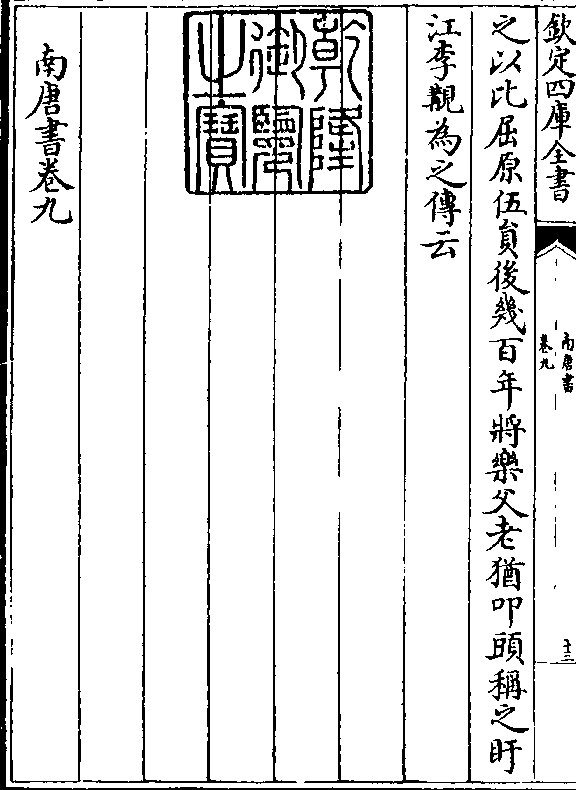 欽定四庫全書
南唐書
卷九
十三
之以比屈原伍員後幾百年將樂父老猶叩頭稱之盱
江李覯為之傳云
乾隆御覽之寶
南唐書卷九